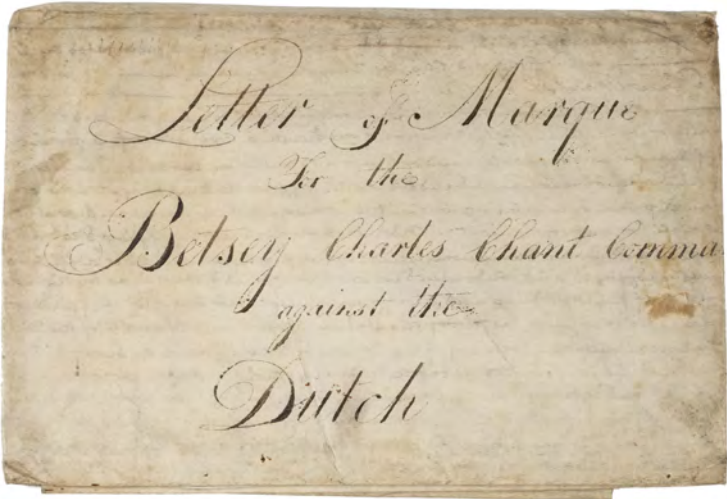 Letter of Marque
For the
Betsey Charles Chant Comma
against the
Dutch